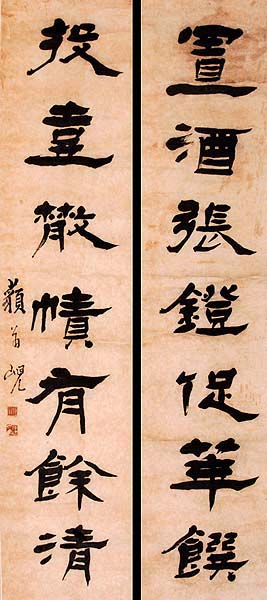 置酒張鐙促華饌
投壺散幘有餘清
蘋翁岘